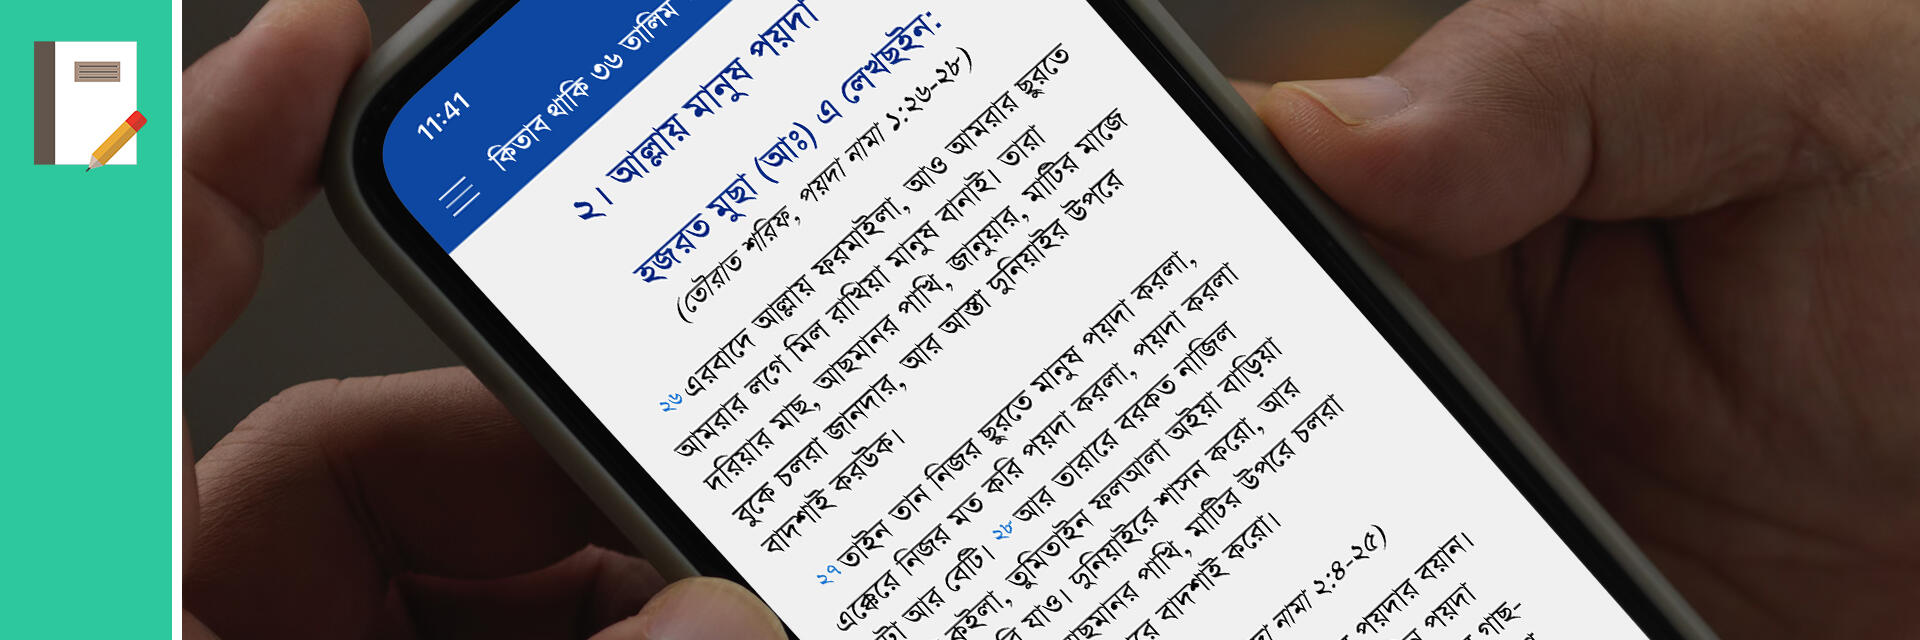 11:41
কিতাব থাকি ৩৬ তালিম
২। আল্লায় মানুষ পয়দা
হজরত মুছা (আঃ) এ লেখছইন:
(তৌরাত শরিফ, পয়দা নামা ১:২৬-২৮)
২৬ এরবাদে আল্লায় ফরমাইলা, আও আমরার ছুরতে
আমরার লগে মিল রাখিয়া মানুষ বানাই। তারা
দরিয়ার মাছ, আছমানর পাখি, জানুয়ার, মাটির মাজে
বুকে চলরা জানদার, আর আস্তা দুনিয়াইর উপরে
বাদশাই করউক।
২৭ তাইন তান নিজর ছুরতে মানুষ পয়দা করলা,
এক্কেরে নিজর মত করি পয়দা করলা, পয়দা করলা
আর বেটি। ২৮ আর তারারে বরকত নাজিল
তুমিতাইন ফলআলা অইয়া বাড়িয়া
যাও। দুনিয়াইরে শাসন করো, আর
পাখি, মাটির উপরে চলরা
বাদশাই করো।
নামা ২:৪-২৫)
পয়দার বয়ান।
পয়দা
গাছ-